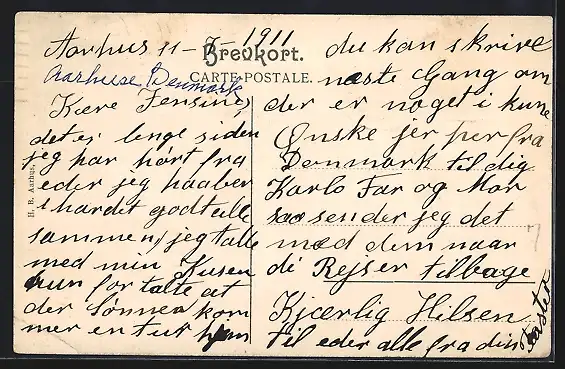 Aarhus 11-7-1911
Brevkort.
CARTE POSTALE.
Aarhuse, Denmark
H. B. Aarhus.
Kære Jensine,
det er lenge siden
jeg har hørt fra
eder jeg haaber
i har det godt alle
sammen, jeg talte
med min Kusen
hun fortalte at
der Sønnen kom
mer en tur hjem
du kan skrive
næste Gang om
der er noget i kune
Ønske jer per fra
Danmark til dig
Karlo Far og Mor
saa sender jeg det
med dem naar
di Rejser tilbage
Kjærlig Hilsen
til eder alle fra din
Faster